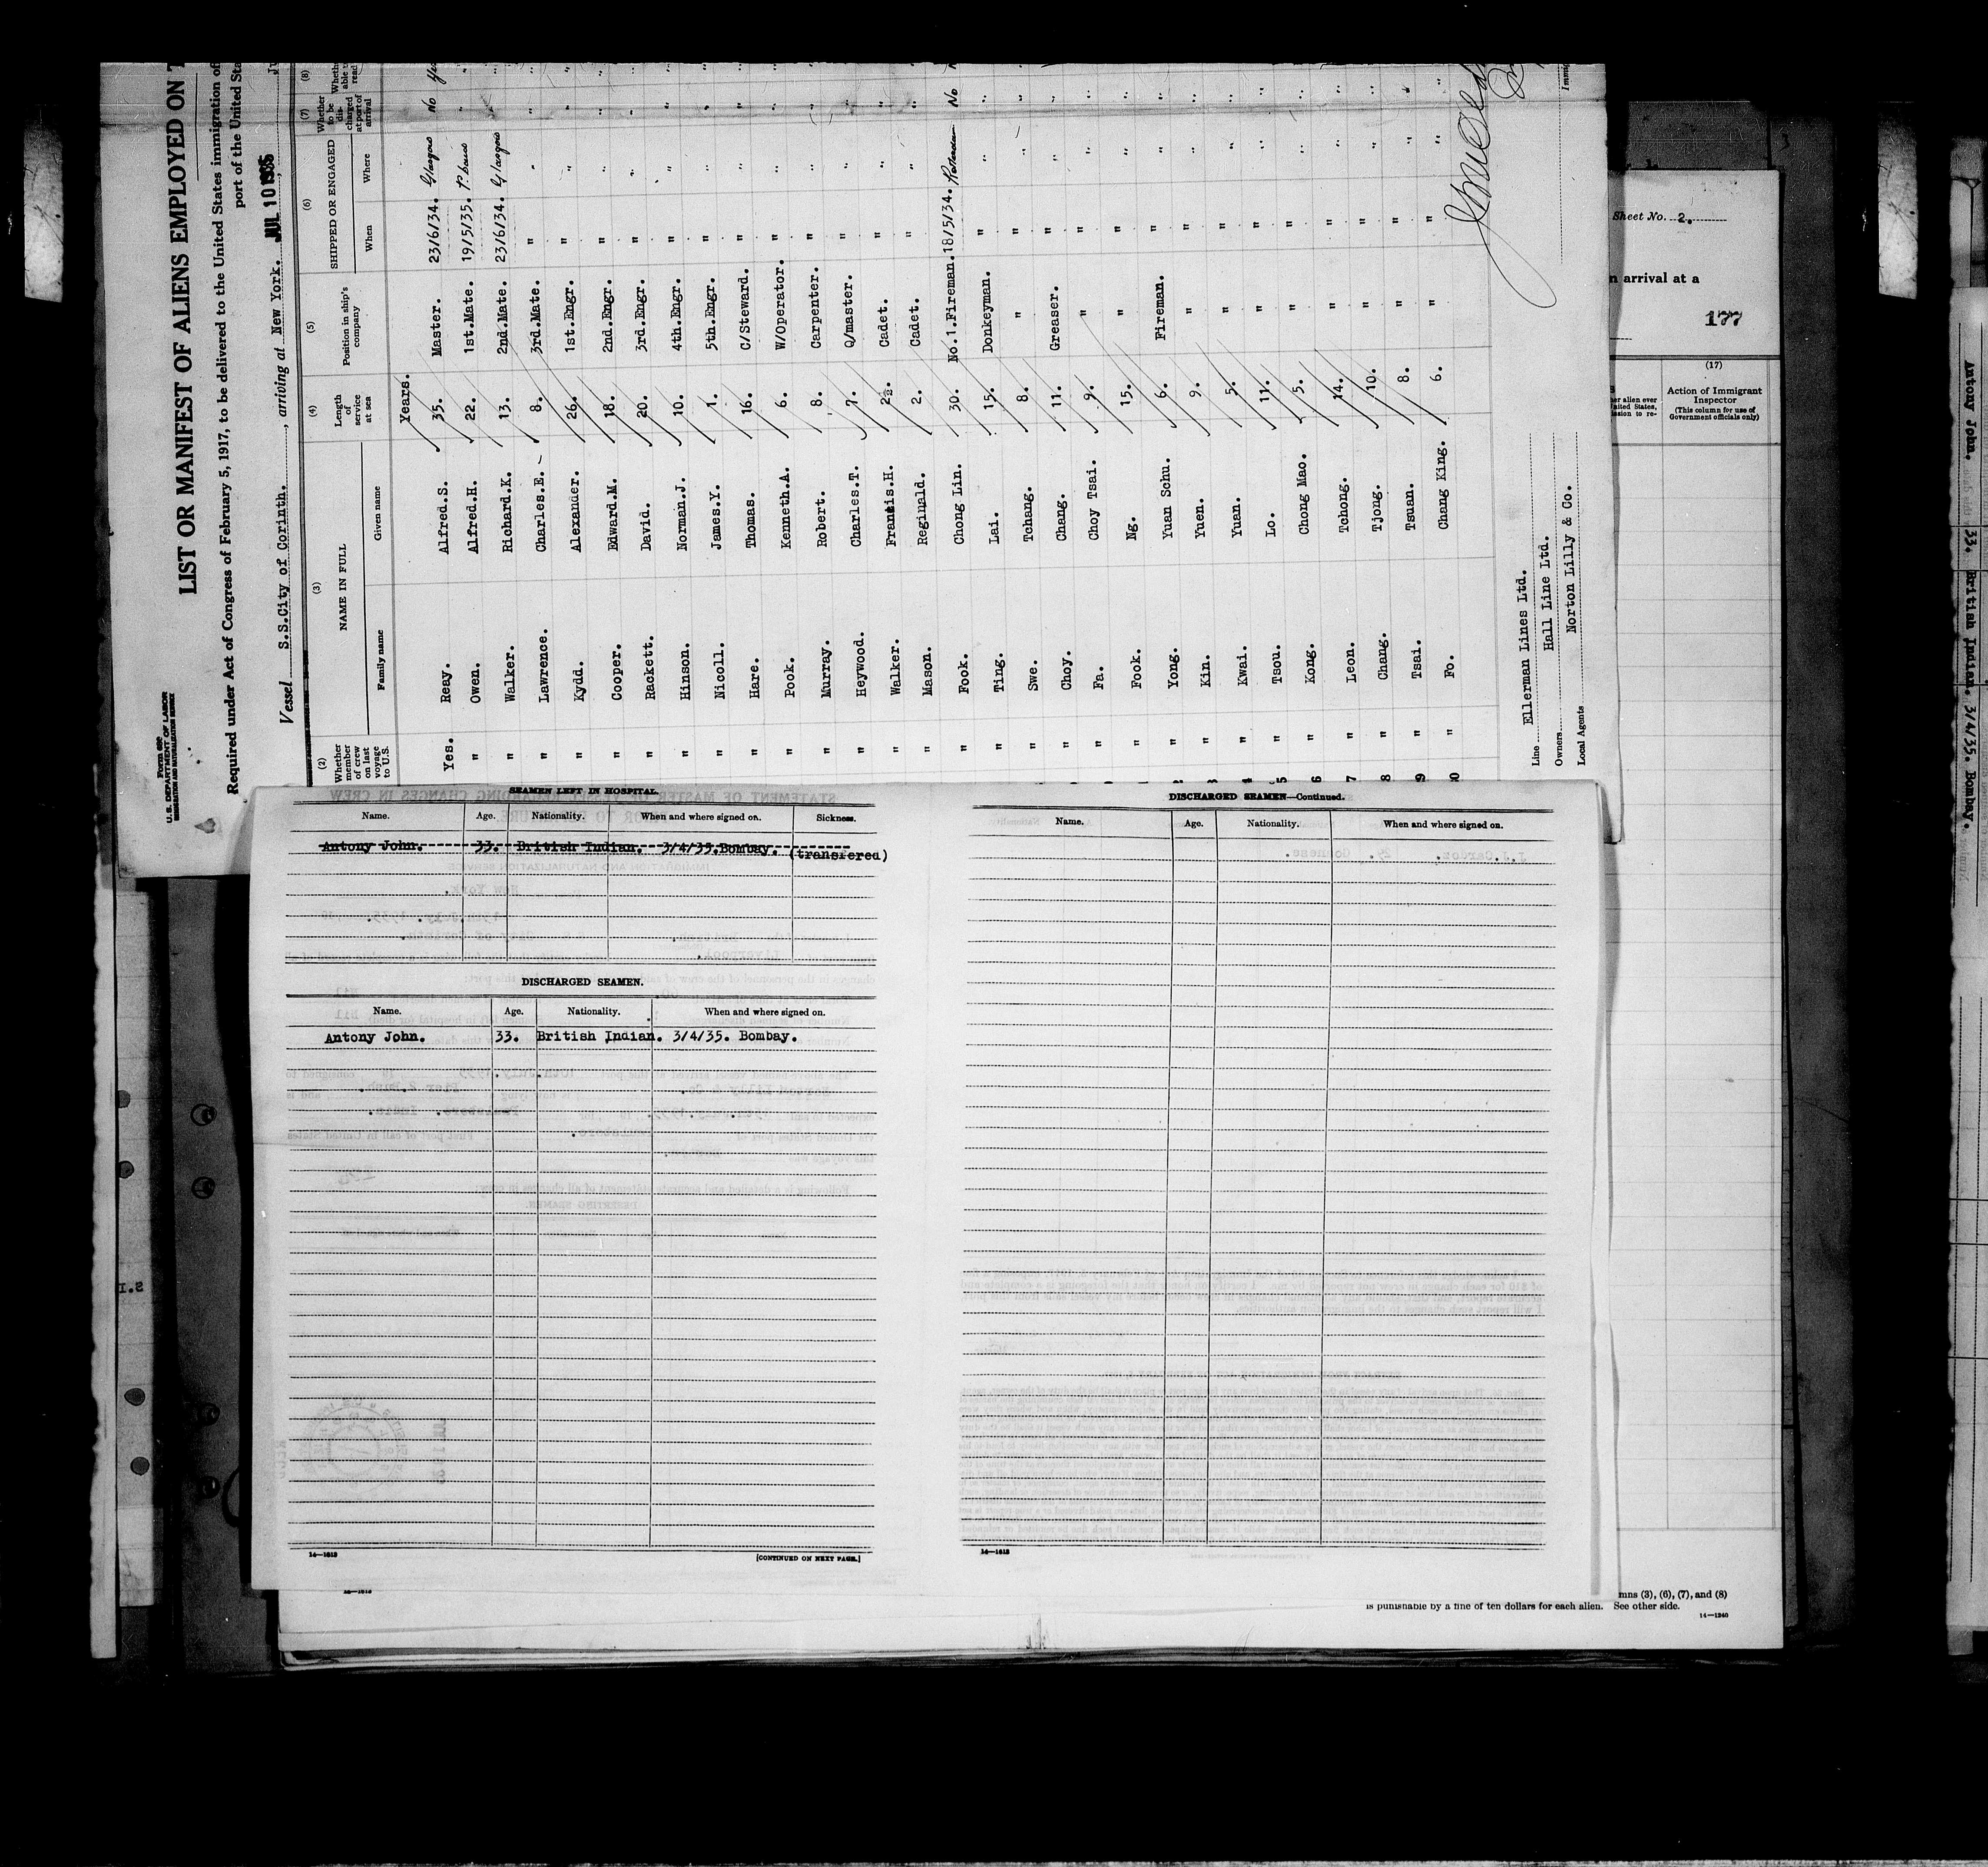 Form 689
U. S. DEPARTMENT OF LABOR
IMMIGRATION AND NATURALIZATION SERVICE
LIST OR MANIFEST OF ALIENS EMPLOYED ON T
Required under Act of Congress of February 5, 1917, to be delivered to the United States immigration of
port of the United Sta
Vessel S.S.City of Corinth. , arriving at New York. JUL 10 1935
(2) (3) (4) (5) (6) (7) (8)
Whether member of crew on last voyage to U.S. NAME IN FULL Length of service at sea Position in ship's company SHIPPED OR ENGAGED Whether to be discharged at port of arrival
Family name Given name When Where
Years.
Yes. Reay. Alfred.S. 35. Master. 23/6/34. Glasgow No Yes
" Owen. Alfred.H. 22. 1st.Mate. 19/5/35.
" Walker. Richard.K. 13. 2nd.Mate. 23/6/34. Glasgow
" Lawrence. Charles.E. 8. 3rd.Mate. " "
" Kydd. Alexander. 26. 1st.Engr. " "
" Cooper. Edward.M. 18. 2nd.Engr. " "
" Rackett. David. 20. 3rd.Engr. " "
" Hinson. Norman.J. 10. 4th.Engr. " "
" Nicoll. James.Y. 1. 5th.Engr. " "
" Hare. Thomas. 16. C/Steward. " "
" Pook. Kenneth.A. 6. W/Operator. " "
" Murray. Robert. 8. Carpenter. " "
" Heywood. Charles.T. 7. Q/master. " "
" Walker. Francis.H. 2½. Cadet. " "
" Mason. Reginald. 2. Cadet. " "
" Fook. Chong Lin. 30. No.1.Fireman. 18/5/34. Rotterdam No
" Ting. Lai. 15. Donkeyman. " "
" Swe. Tchang. 8. " " "
" Choy. Chang. 11. Greaser. " "
" Fa. Choy Tsai. 9. " " "
" Fook. Ng. 15. " " "
" Yong. Yuan Schu. 6. Fireman. " "
" Kin. Yuen. 9. " " "
" Kwai. Yuan. 5. " " "
" Tsou. Lo. 11. " " "
" Kong. Chong Mao. 5. " " "
" Leon. Tchong. 14. " " "
" Chang. Tjong. 10. " " "
" Tsai. Tsuan. 8. " " "
" Fo. Chang King. 6. " " "
Line Ellerman Lines Ltd.
Owners Hall Line Ltd.
Local Agents Norton Lilly & Co.
Sheet No. 2.
n arrival at a
177
(17)
Action of Immigrant Inspector
(This column for use of Government officials only)
SEAMEN LEFT IN HOSPITAL.
Name. Age. Nationality. When and where signed on. Sickness.
Antony John. 33. British Indian. 3/4/35.Bombay. (transfered)
DISCHARGED SEAMEN.
Name. Age. Nationality. When and where signed on.
Antony John. 33. British Indian. 3/4/35. Bombay.
14—1613
[CONTINUED ON NEXT PAGE.]
DISCHARGED SEAMEN—Continued.
Name. Age. Nationality. When and where signed on.
14—1613
mns (3), (6), (7), and (8)
is punishable by a fine of ten dollars for each alien. See other side.
14—1240
Antony John. 33. British Indian. 3/4/35. Bombay.